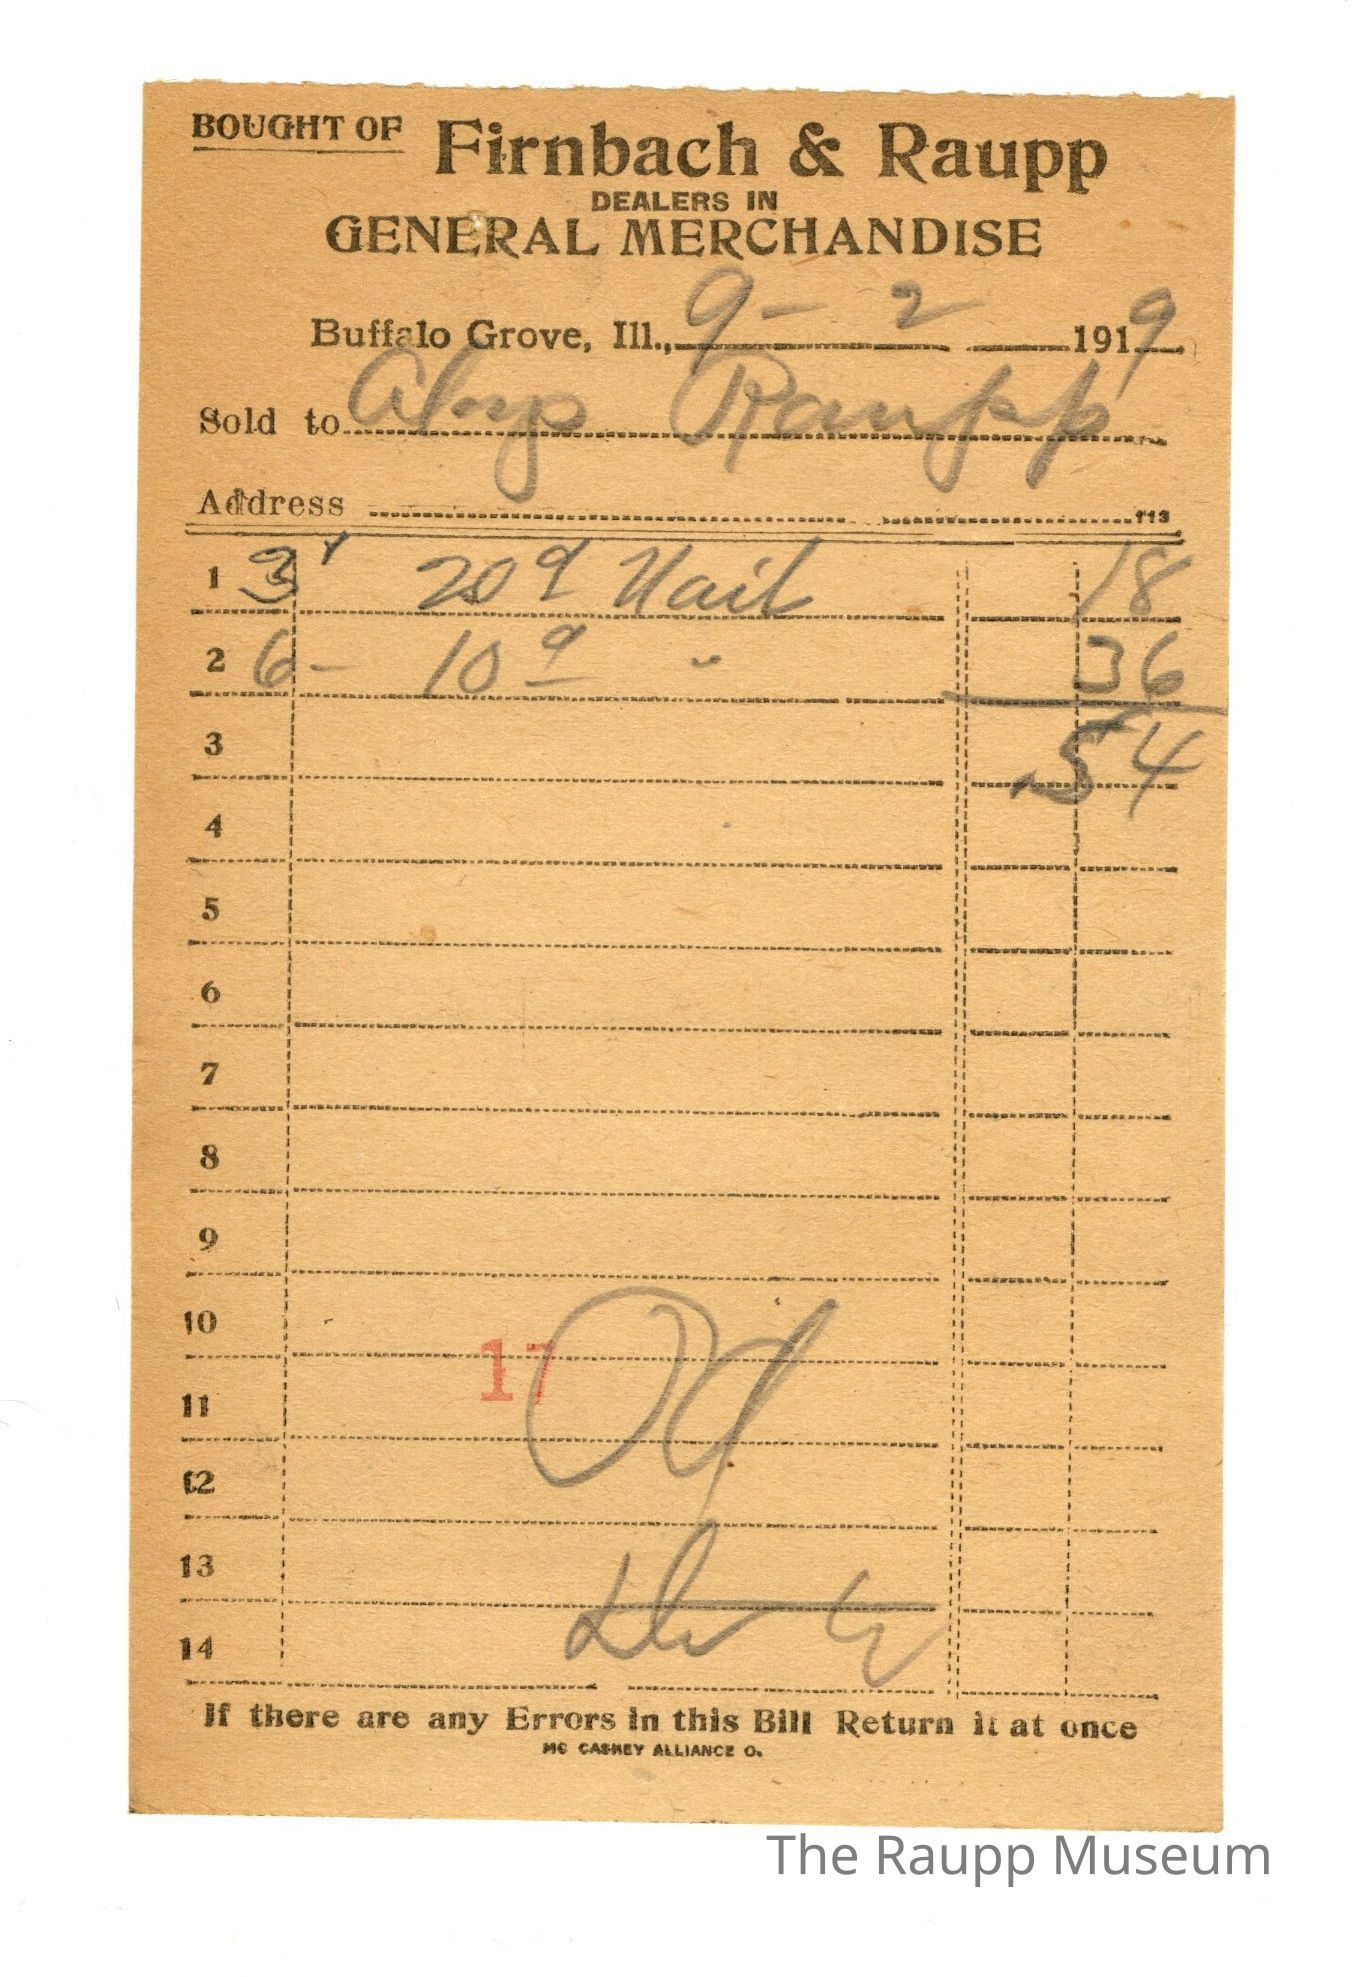 BOUGHT OF Firnbach & Raupp
DEALERS IN
GENERAL MERCHANDISE
Buffalo Grove, Ill., 9-2 1919
Sold to Aloys Raupp
Address 113
1 3# 20d Nail 18
2 6- 10d " 36
3 .54
4
5
6
7
8
9
10
17
11
12
13
14
If there are any Errors in this Bill Return it at once
MC CASKEY ALLIANCE O.
The Raupp Museum